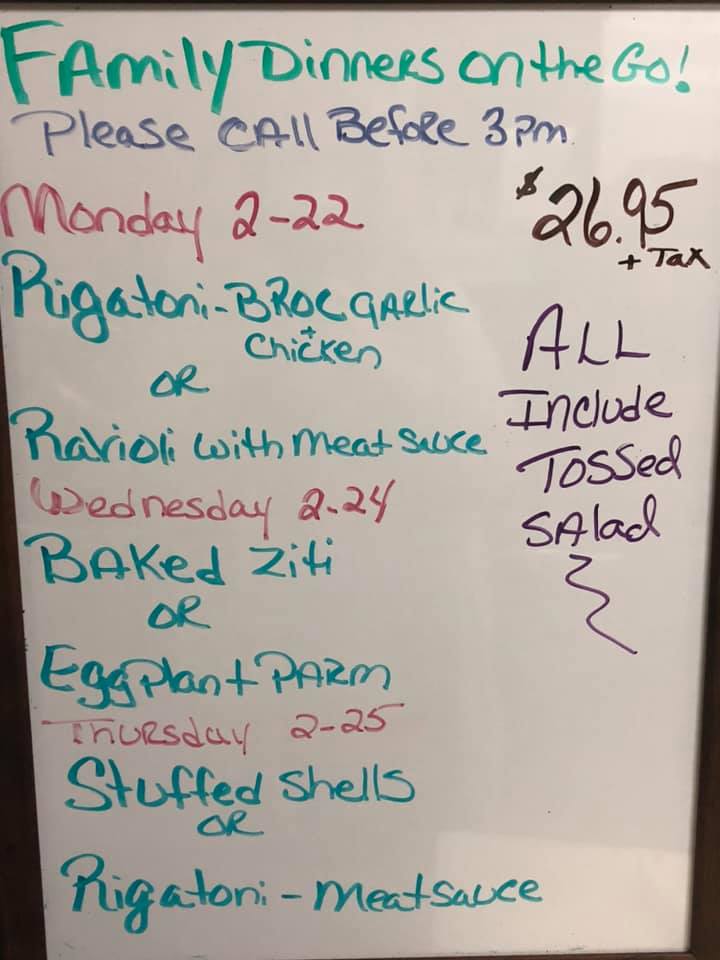 Family Dinners on the Go!
Please Call Before 3pm
Monday 2-22
$26.95
+ Tax
Rigatoni - Broc garlic
+
Chicken
OR
Ravioli with meat sauce
Wednesday 2-24
Baked Ziti
OR
Eggplant Parm
Thursday 2-25
Stuffed Shells
OR
Rigatoni - meatsauce
ALL
Include
Tossed
Salad